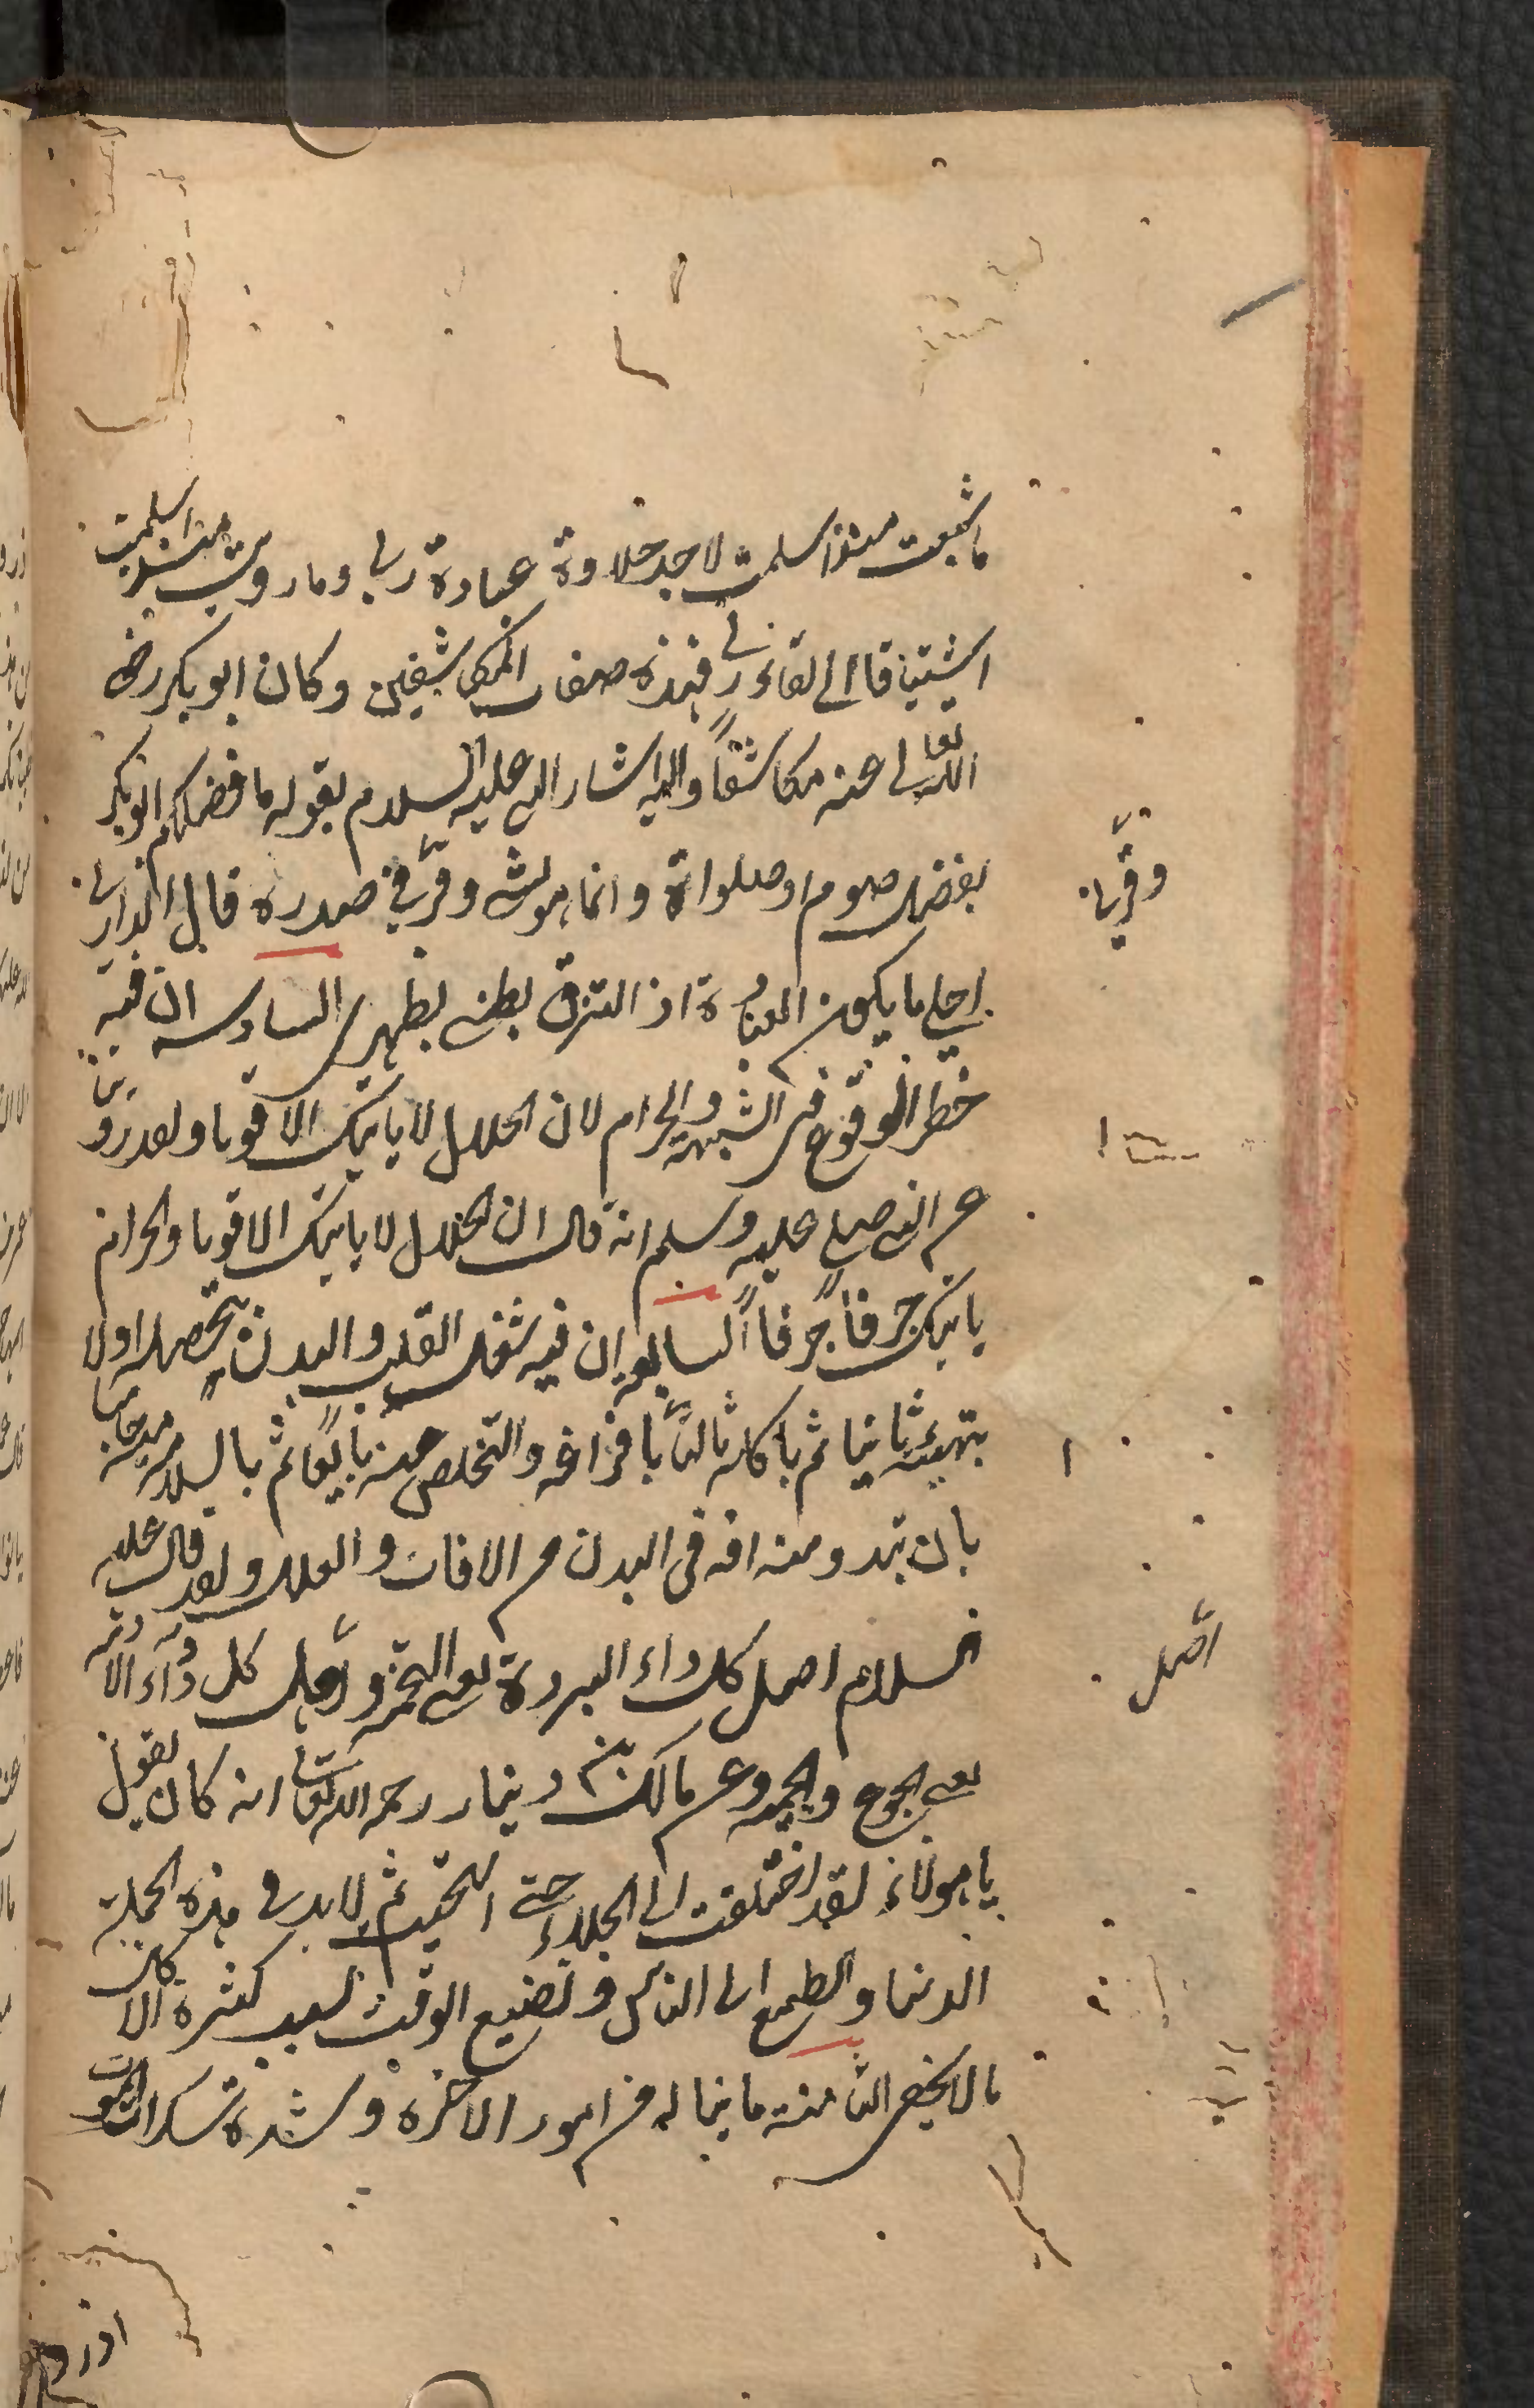 ما شبعت منذ اسلمت لاجد حلاوة عبادة ربي وما رويت منذ اسلمت
اشتياقا الى لقاء ربي فهذه صفات المكاشفين وكان ابو بكر رضي
الله تعالى عنه مكاشفاً واليه اشار النبي عليه السلام بقوله ما فضلكم ابو بكر
بفضل صوم او صلواة وانما هو بشيء وقر في صدره قال الداراني
احلى ما يكون العبادة اذا التزق بطني بظهري السادسة ان فيه
خطر الوقوع في الشبهة والحرام لان الحلال لا ياتيك الا قوتا ولقد روينا
عن النبي صلى عليه وسلم انه قال ان الحلال لا ياتيك الا قوتا والحرام
ياتيك جرفاً جرفاً السابعة ان فيه شغل القلب والبدن بتحصيله اولا
بتهيئه ثانيا ثم باكله ثالثاً بافراغه والتخلص عنه رابعاً ثم بالسلامة منه خامسا
بان تبدو منه افة في البدن من الافات والعلل ولقد قال عليه
السلام اصل كل داء البردة يعني التخمة واصل كل دواء الازمة
يعني الجوع والحمية وعن مالك بن دينار رحمه الله تعالى انه كان يقول
يا هؤلاء لقد اختلفت الى الخلاء حتى استحييت ثم لابد في هذه الجملة
الدنيا والطمع الى الناس وتضييع الوقت بسبب كثرة الاكل
ما لا يخفى الثامنة ما يناله من امور الاخرة وشدة سكرات الموت
وقر بها
اصل